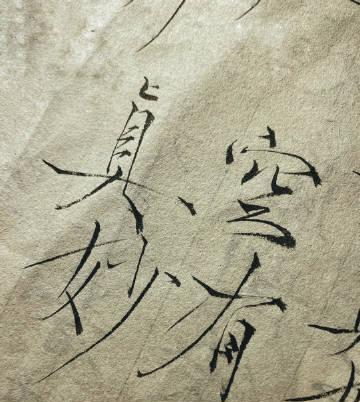 真空
妙有